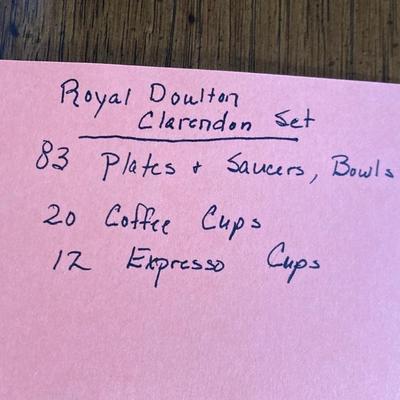 Royal Doulton
Clarendon Set
83 Plates + Saucers, Bowls
20 Coffee Cups
12 Expresso Cups